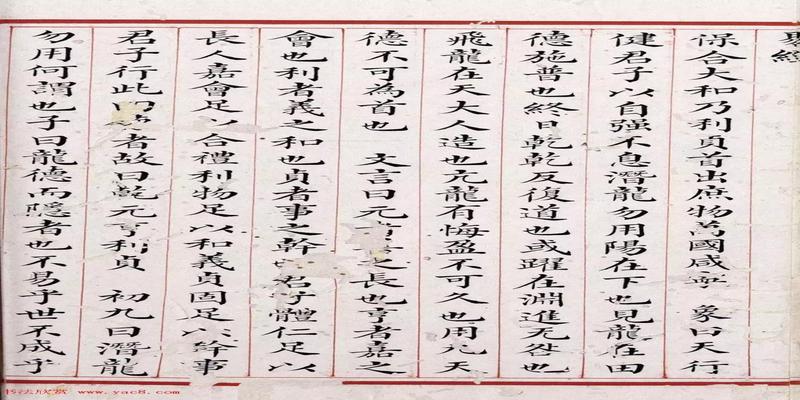 保合大和乃利貞首出庶物萬國咸寍 象曰天行
健君子以自强不息潛龍勿用陽在下也見龍在田
德施普也終日乾乾反復道也或躍在淵進无咎也
飛龍在天大人造也亢龍有悔盈不可久也用九天
德不可為首也 文言曰元長也亨者嘉之
會也利者義之和也貞者事之幹君子體仁足以
長人嘉會足以合禮利物足以和義貞固足以幹事
君子行此者故曰乾元亨利貞 初九曰潛龍
勿用何謂也子曰龍德而隱者也不易乎世不成乎
书法欣赏 www.yac8.com